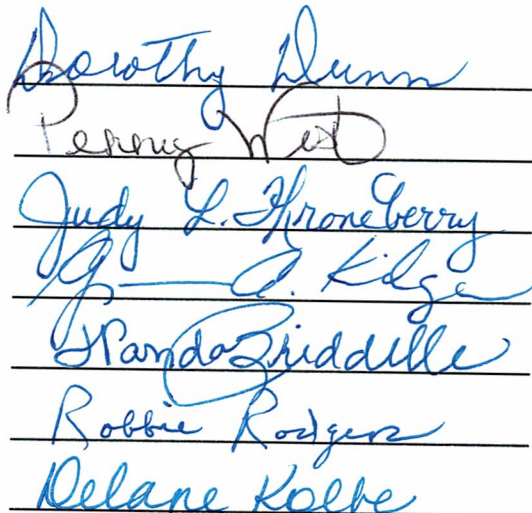 Dorothy Dunn
Penny West
Judy L. Throneberry
A. Kilge
Priddelle
Robbie Rodgers
Delane Kolbe